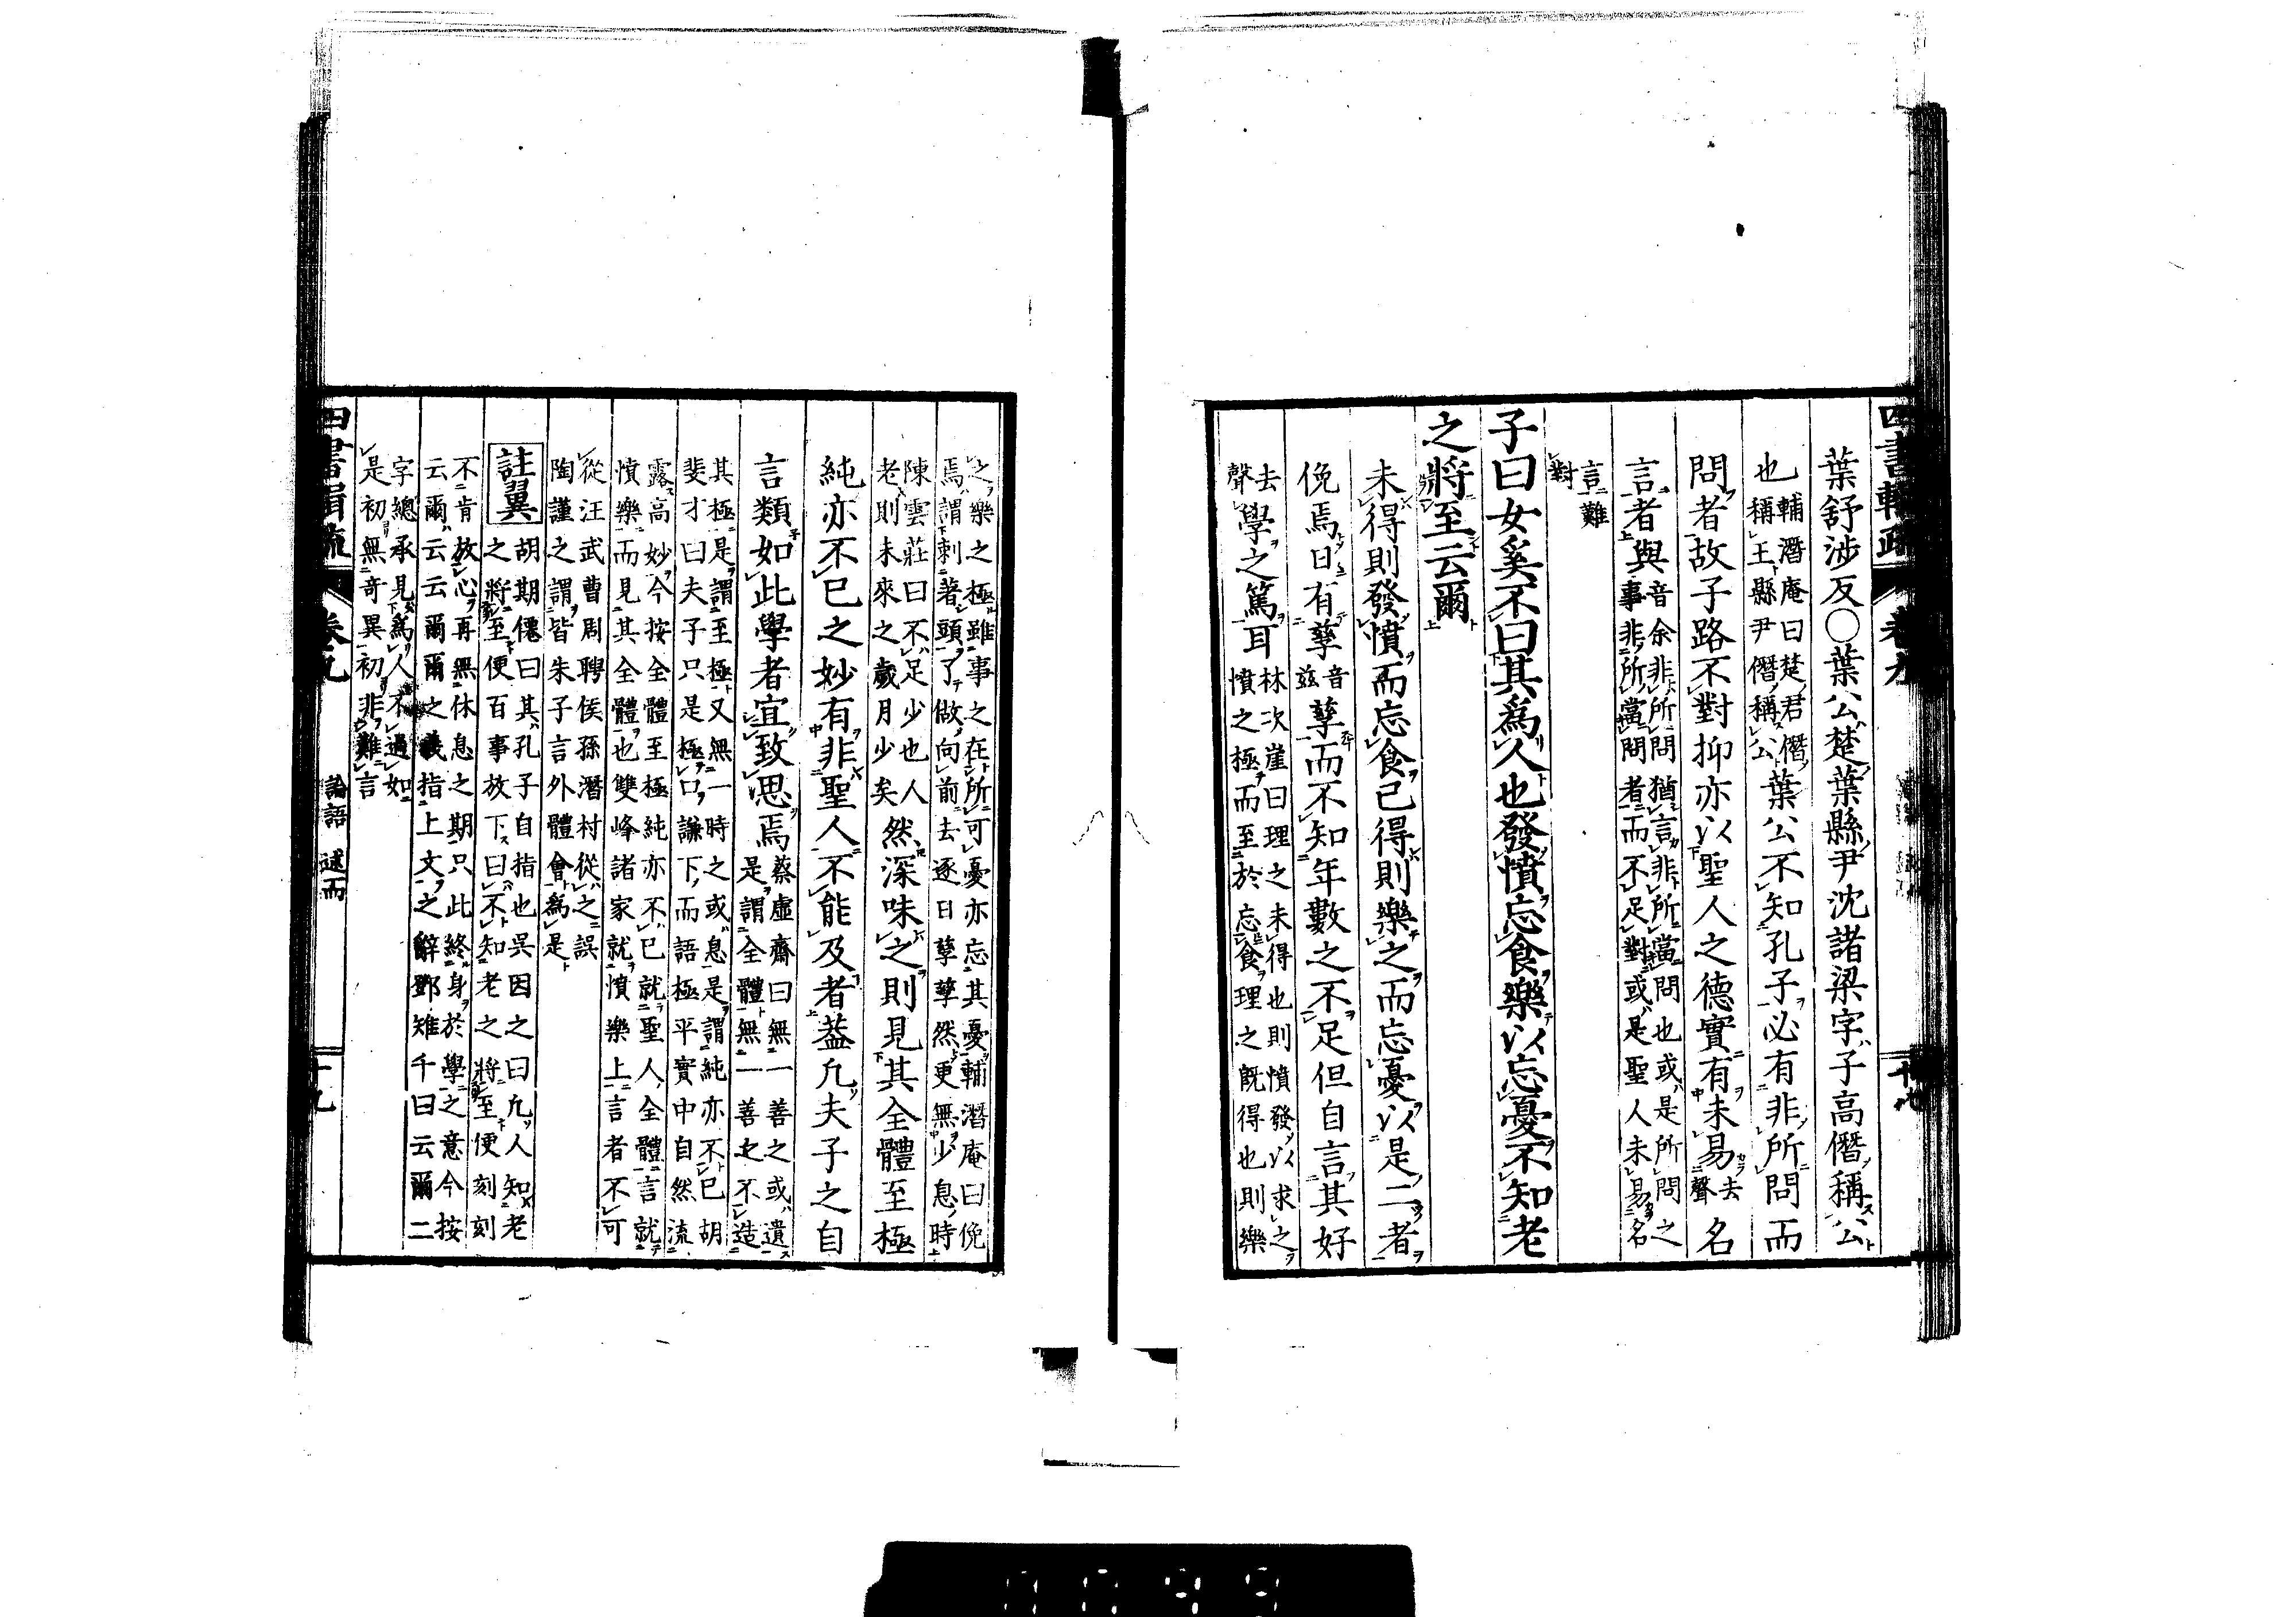 四書輯疏 卷九
葉舒涉反○葉公楚葉縣尹沈諸梁字子高僭稱公
也輔潛庵曰楚君僭稱王縣尹僭稱公葉公不知孔子必有非所問而
問者故子路不對抑亦以聖人之德實有未易去聲名
言者與音余非所問猶言非所當問也或是所問之事非所當問者而不足對或是聖人未易名
言難對
子曰女奚不曰其爲人也發憤忘食樂以忘憂不知老
之將至云爾
未得則發憤而忘食已得則樂之而忘憂以是二者
俛焉日有孳音茲孳而不知年數之不足但自言其好
去聲學之篤耳林次崖曰理之未得也則憤發以求之憤之極而至於忘食理之旣得也則樂
之樂之極雖事之在所可憂亦忘其憂輔潛庵曰俛焉謂刺著頭了做向前去逐日孳孳然更無少息時
陳雲莊曰不足少也人老則未來之歲月少矣然深味之則見其全體至極
純亦不已之妙有非聖人不能及者蓋凡夫子之自
言類如此學者宜致思焉蔡虛齋曰無一善之或遺是謂全體無一善之不造
其極是謂至極又無一時之或息是謂純亦不已胡斐才曰夫子只是極口謙下而語極平實中自然流
露高妙今按全體至極純亦不已就聖人全體言就憤樂而見其全體也雙峰諸家就憤樂上言者不可
從汪武曹周聘侯孫潛村從之誤陶謹之謂皆朱子言外體會爲是
註翼胡期僊曰其孔子自指也吳因之曰凡人知老之將至便百事放下曰不知老之將至便刻刻
不肯放心再無休息之期只此終身於學之意今按云爾云云爾爾之義指上文之辭鄧雉千曰云爾二
字總承見爲人不過如是初無奇異初非難言
四書輯疏 卷九 論語 述而 十九